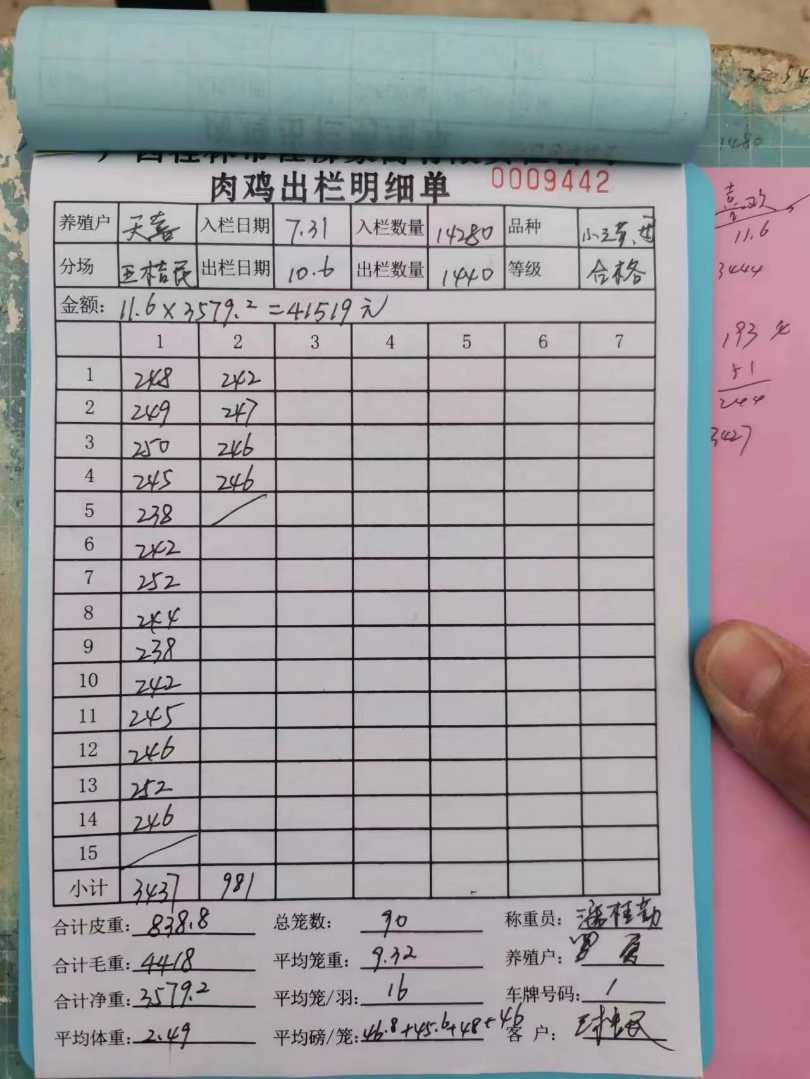 肉鸡出栏明细单 0009442
养殖户 天喜 入栏日期 7.31 入栏数量 14280 品种
分场 王桔民 出栏日期 10.6 出栏数量 1440 等级 合格
金额: 11.6×3579.2=41519元
1 2 3 4 5 6 7
1 248 242
2 249 247
3 250 246
4 245 246
5 238
6 242
7 252
8 244
9 238
10 242
11 245
12 246
13 252
14 246
15
小计 3437 981
合计皮重: 838.8 总笼数: 90 称重员: 潘桂勤
合计毛重: 4418 平均笼重: 9.32 养殖户:
合计净重: 3579.2 平均笼/羽: 16 车牌号码: /
平均体重: 2.49 平均磅/笼: 46.8+45.6+48+46 客 户:
1480
11.6
3444
193
51
244
3427